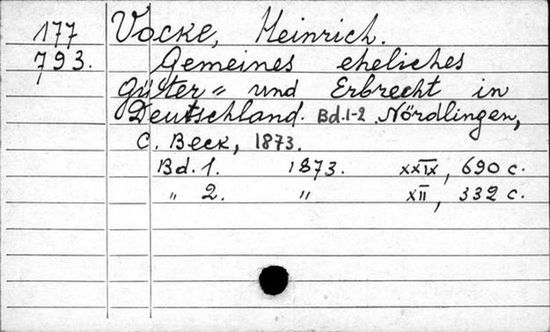 177 Vocke, Heinrich.
793. Gemeines eheliches
Güter= und Erbrecht in
Deutschland. Bd.1-2 Nördlingen,
C. Beck, 1873.
Bd. 1. 1873. XXIX, 690 c.
„ 2. „ XII, 332 c.